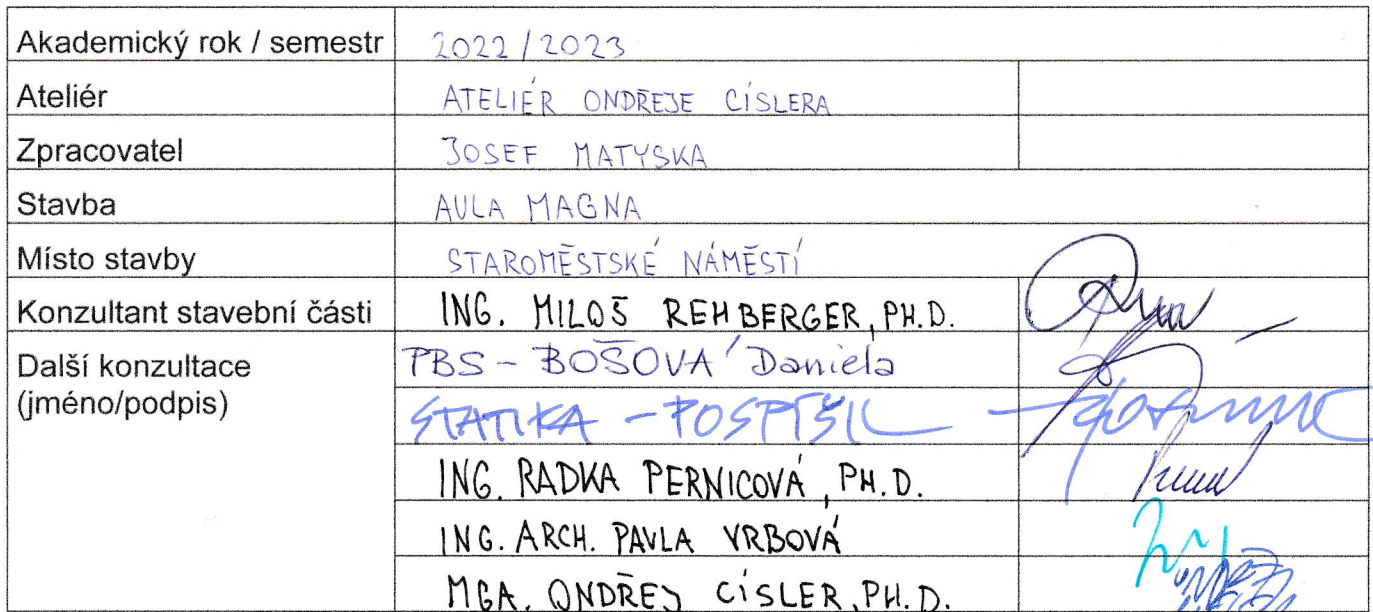 Akademický rok / semestr 2022/2023
Ateliér ATELIÉR ONDŘEJE CÍSLERA
Zpracovatel JOSEF MATYSKA
Stavba AULA MAGNA
Místo stavby STAROMĚSTSKÉ NÁMĚSTÍ
Konzultant stavební části ING. MILOŠ REHBERGER, PH.D.
Další konzultace PBS - BOŠOVÁ Daniela
(jméno/podpis) STATIKA - POSPÍŠIL
ING. RADKA PERNICOVÁ, PH.D.
ING. ARCH. PAVLA VRBOVÁ
MGA. ONDŘEJ CÍSLER, PH.D.